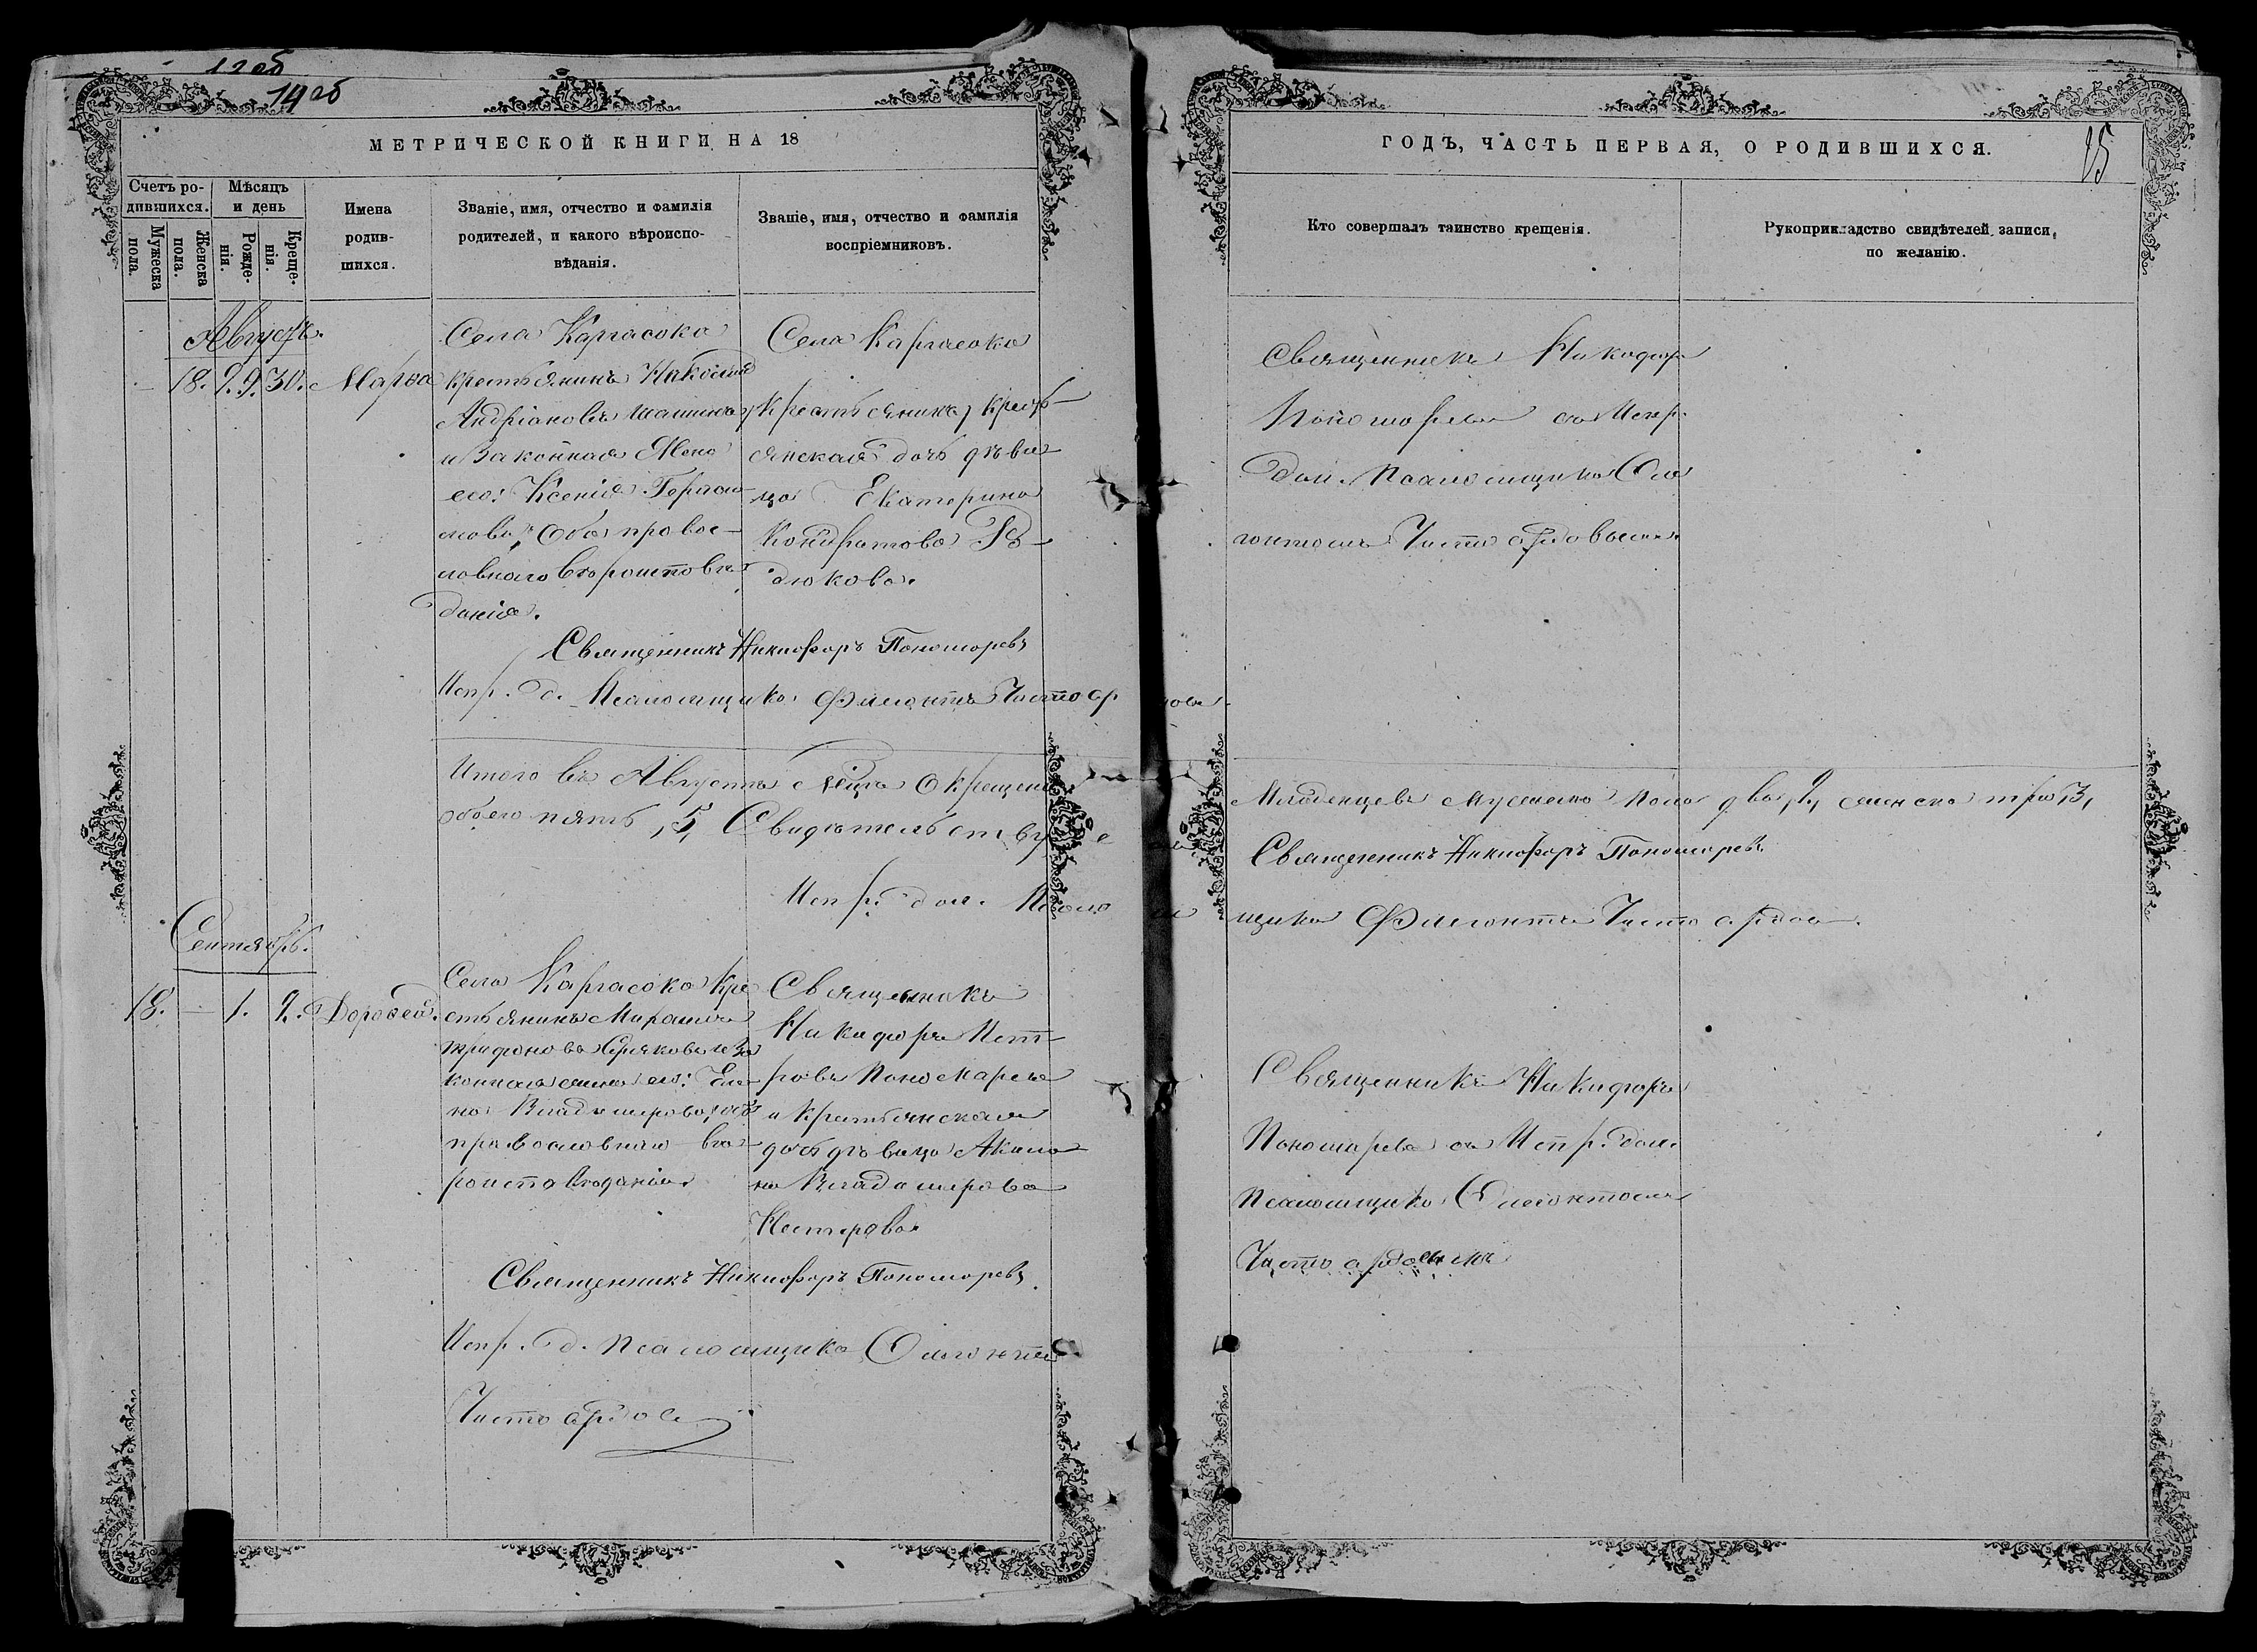 12 об
14 об
МЕТРИЧЕСКОЙ КНИГИ НА 18
Счетъ ро-
дившихся.
Мѣсяцъ
и день
Мужеска
пола.
Женска
пола.
Рожде-
нія.
Креще-
нія.
Имена
родив-
шихся.
Званіе, имя, отчество и фамилія
родителей, и какого вѣроиспо-
вѣданія.
Званіе, имя, отчество и фамилія
воспріемниковъ.
Августъ.
18. 30. Марѳа
Села Каргасока
крестьянинъ Николай
Андріановъ
и Законная Жена
его: Ксенія Гераси-
мова, Оба правос-
лавнаго вѣроисповѣ
данія.
Села Каргасока
Крестьянина, крестъ-
янская дочь дѣви
ца Екатерина
Кондратова
дюкова.
Священникъ Никифоръ Пономоревъ
Испр. д. Псаломщика Филонтъ
Итого въ Августѣ м-цѣ Окрещено
обоего пять, 5, Свидѣтельствуе
Испр. дол. Псало
Сентябрь.
18. - 1. 2. Дороѳей.
Села Каргасока Кре
стьянинъ
Трифоновъ и За
конная жена его: Еле
на Владимирова, оба
православнаго вѣ
роисповѣданія.
Священникъ
Никифоръ Пет-
ровъ Пономаревъ
и Крестьянская
дочь дѣвица Акили
на Владимирова
Нестерова
Священникъ Никифоръ Пономоревъ.
Испр. д. Псаломщика Филонтъ
ГОДЪ, ЧАСТЬ ПЕРВАЯ, О РОДИВШИХСЯ.
15
Кто совершалъ таинство крещенія.
Рукоприкладство свидѣтелей записи,
по желанію.
Священникъ Никифоръ
Пономаревъ съ Испр.
Дол. Псаломщика Фи
лонтомъ
Младенцевъ мужеска пола два, 2, женска три 3,
Священникъ Никифоръ Пономоревъ
щика Филонтъ
Священникъ Никифоръ
Пономаревъ съ Испр. дол.
Псаломщика Филонтомъ